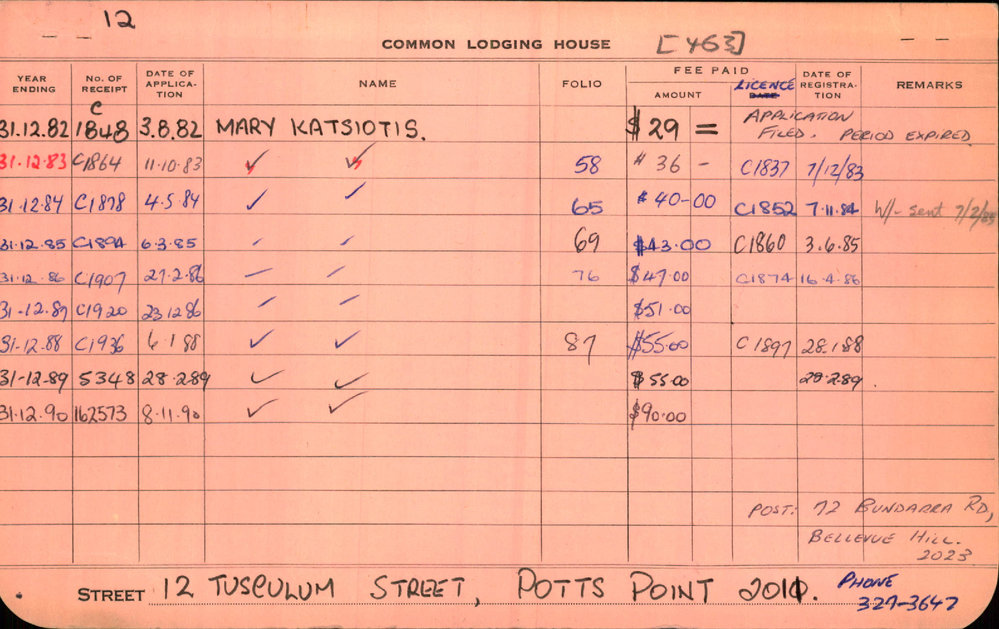 12
COMMON LODGING HOUSE [463]
YEAR ENDING No. OF RECEIPT DATE OF APPLICA- TION NAME FOLIO FEE PAID AMOUNT LICENCE DATE DATE OF REGISTRA- TION REMARKS
31.12.82 C 1848 3.8.82 MARY KATSIOTIS. $29 = APPLICATION FILED. PERIOD EXPIRED
31.12.83 C1864 11.10.83 ✓ ✓ 58 $36 - C1837 7/12/83
31.12.84 C1878 4.5.84 ✓ ✓ 65 $40-00 C1852 7.11.84 W/- sent 7/2/85
31.12.85 C1894 6.3.85 ✓ ✓ 69 $43.00 C1860 3.6.85
31.12.86 C1907 27.2.86 ✓ ✓ 76 $47.00 C1874 16.4.86
31-12.87 C1920 23 12 86 ✓ ✓ $51.00
31-12.88 C1936 6.1.88 ✓ ✓ 87 $55.00 C1897 28.1.88
31-12-89 5348 28.2.89 ✓ ✓ $55.00 28.2.89
31.12.90 162573 8.11.90 ✓ ✓ $90.00
POST: 72 BUNDARRA RD,
BELLEVUE HILL.
2023
STREET 12 TUSCULUM STREET, POTTS POINT 2011. PHONE
327-3647